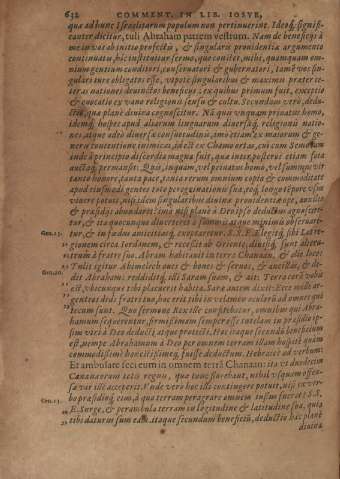 632 COMMENT. IN LIB. IOSVE,
qua adhuc Israelitarum populum non pertinuerint. Ideoq; signifi-
canter dicitur, tuli Abraham patrem vestrum. Nam de beneficijs à
me in vos ab initio profectis, & singularis prouidentiæ argumento
continuatur, hic instituitur sermo,
minum gentium conditori, conseruatori & gubernatori, tamen vos sin-
gulari iure obligatos esse, vtpote singularibus & maximis præter ce-
teras nationes deuinctos beneficijs: ex quibus primum fuit, exceptio
& euocatio ex vano religionis sensu & cultu. Secundum verò, dedu-
ctio, quæ planè diuina cognoscitur. Nā quis vnquam priuatus homo,
idemq; hospes apud aliarum linguarum diuersasq; religionis natio-
nes, atque adeò diuersæ consuetudinis, imò etiam ex maiorum & ge-
neris contentione inimicas, id est ex Chamo ortas, cui cum Semo iam
inde à principio discordia magna fuit, quæ inter posteros etiam fota
auctaq; permansit: Quis, inquam, vel priuatus homo, vel summus vir
tanto honore, tanta pace, tanta rerum omnium copia & commoditate
apud eiusmodi gentes toto peregrinationis suæ, eoq; longo tempore vsus
viuere potuit, nisi idem singularibus diuinæ prouidentiæ ope, auxilio
& præsidijs abundarit: imò nisi planè à Deo ipso deductus agnoscere-
tur, & ita quocunque diuerteret à summis atque minimis obseruare-
Gen.13. tur, & in fœdus amicitiamq; exoptaretur. S. S. E. Elegitq; sibi Lot re-
gionem circa Iordanem, & recessit ab Oriente, diuisiq; sunt alteru-
trum à fratre suo. Abram habitauit in terra Chanaan, & alibi hoc:
Tulit igitur Abimelech oues & boues & seruos, & ancillas, & de-
Gen.20. dit Abraham: reddiditq; illi Saram suam, & ait: Terra coràm vobis
est, vbicunque tibi placuerit habita. Saræ autem dixit: Ecce mille ar-
genteos dedi fratri tuo, hoc erit tibi in velamen oculorū ad omnes qui
tecum sunt. Quo sermone Rex ille confitebatur, omnibus qui Abra-
hamum sequerentur, firmissimam semper esse tutelam in præsidio ip-
sius viri à Deo deducti, atque protecti. Hoc itaque secundū beneficium
est, nempe Abrahamum à Deo per omnem terram illam hospitē quàm
commodissimè honestissimeq; fuisse deductum. Hebraicè ad verbum:
Et ambulare feci eum in omnem terrā Chanaan: ita vt duodecim
Cananæorum totis regnis, quæ tunc florebant, nihil vsquam offen-
sæ vel ille acceperit. Vnde verò hoc illi contingere potuit, nisi ex ver-
Gen.13. bo præsidioq; eius, à quo terram peragrare omnem iussus fuerat: S. S.
E. Surge, & perambula terram in longitudine & latitudine sua, quia
tibi daturus sum eam. Itaque secundum beneficiū, deductio hæc planè
diuina